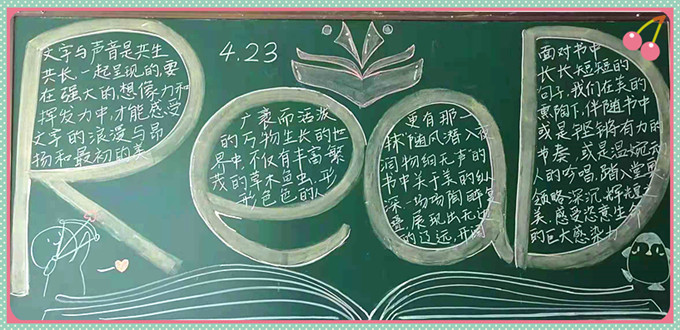 ReaD
4.23
文字与声音是共生
共长,一起呈现的,要
在强大的想像力和
挥发力中,才能感受
文字的浪漫与昂
扬和最初的美
广袤而活泼
的万物生长的世
界中,不仅有丰富繁
茂的草木鱼虫,形
形色色的人
更有那一
随风潜入夜
润物细无声"的
书中关于美的纵
深,一场场陶醉
叠,展现出无边
的辽远,开阔
面对书中
长长短短的
句子,我们在美的
熏陶下,伴随书中
或是铿锵有力的
节奏,或是温婉动
人的吟唱,踏入堂奥
领略深沉,辉煌
美,感受恣意生
的巨大感染力